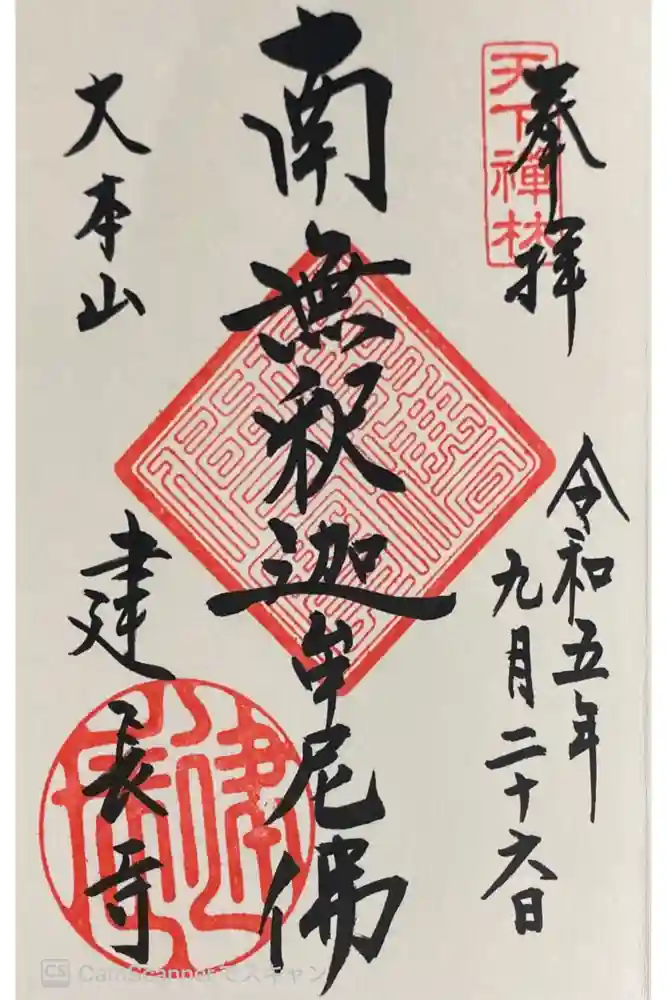 奉拝
天下禅林
令和五年
九月二十六日
南無釈迦牟尼佛
大本山
建長寺
CS CamScannerでスキャン